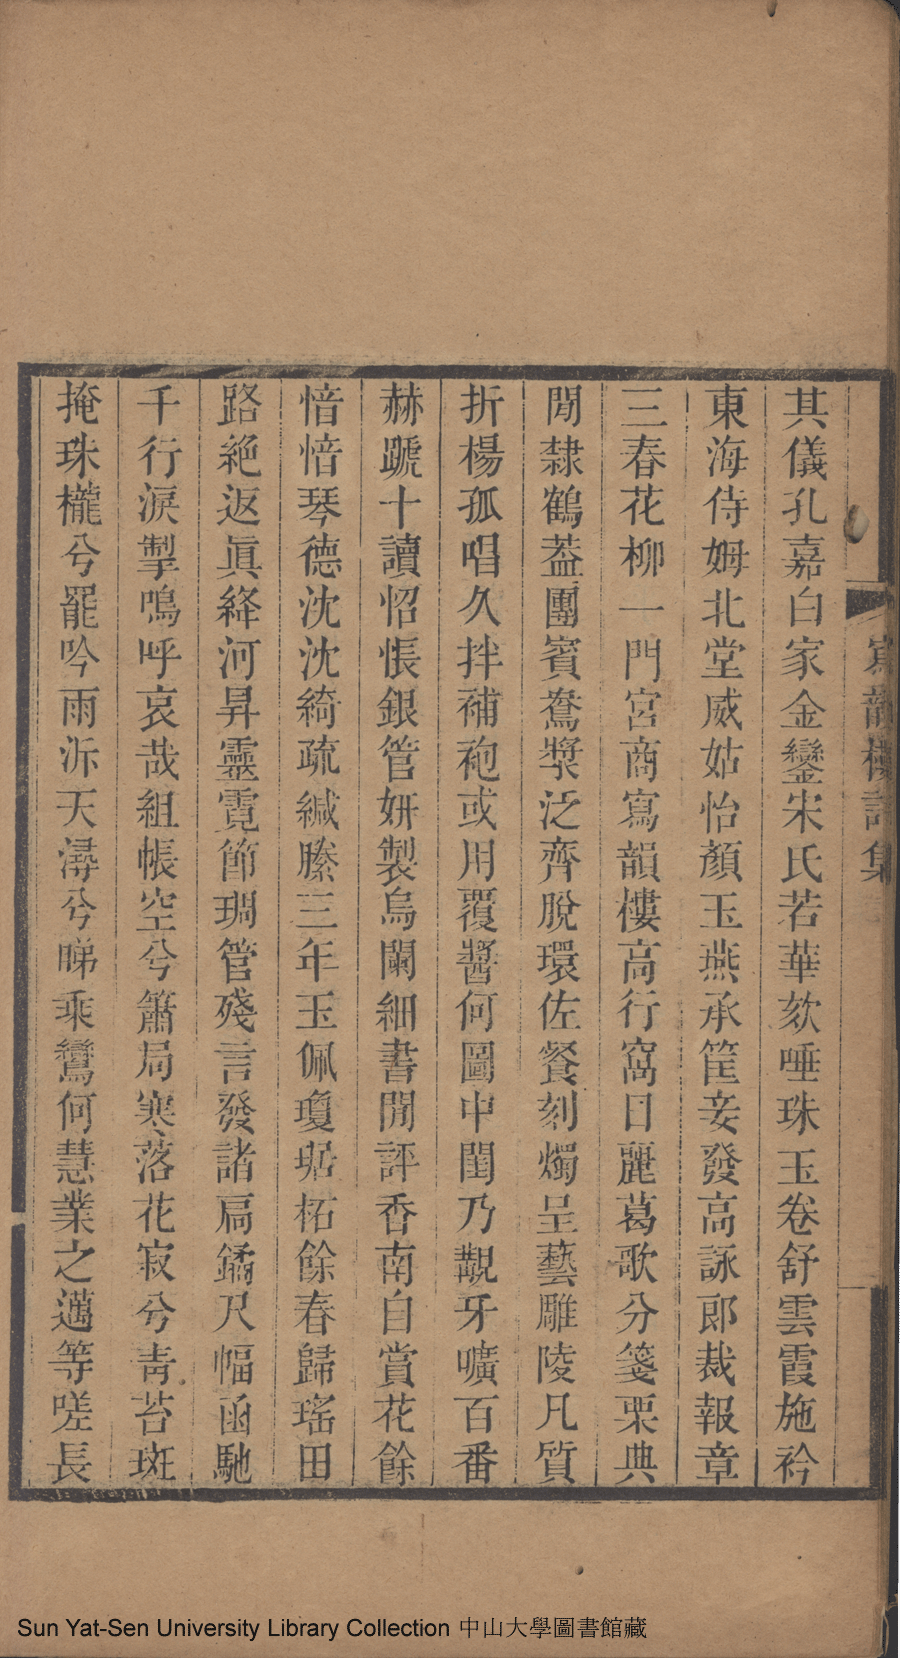 寫韻樓詩集
其儀孔嘉白家金鑾宋氏若華欬唾珠玉卷舒雲霞施衿
東海侍姆北堂威姑怡顏玉燕承筐妾發高詠郎裁報章
三春花柳一門宮商寫韻樓高行窩日麗葛歌分箋栗典
閒隸鶴葢團賓鴦槳泛齊脫環佐餐刻燭呈藝雕陵凡質
折楊孤唱久拌補袍或用覆醬何圖中閨乃觀牙曠百番
赫蹏十讀怊悵銀管妍製烏闌細書閒評香南自賞花餘
愔愔琴德沈沈綺疏緘縢三年玉佩瓊琚柘餘春歸瑤田
路絶返眞絳河昇靈霓節琱管殘言發諸扃鐍尺幅函馳
千行淚掣嗚呼哀哉組帳空兮簫局寒落花寂兮靑苔斑
掩珠櫳兮罷吟雨泝天潯兮睇乘鸞何慧業之邁等嗟長
Sun Yat-Sen University Library Collection 中山大學圖書館藏